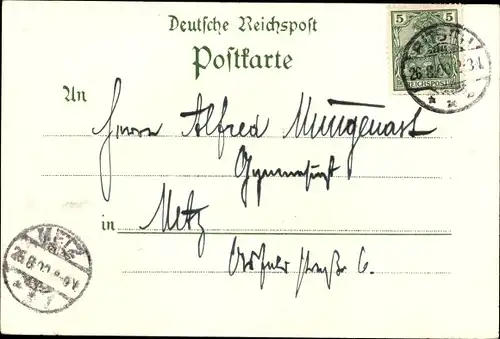 Deutsche Reichspost
Postkarte
5 5
REICHSPOST
26.8.00
An Herrn Alfred Mungenast
Gymnasiast
in Metz
straße 6.
METZ
26.8.00